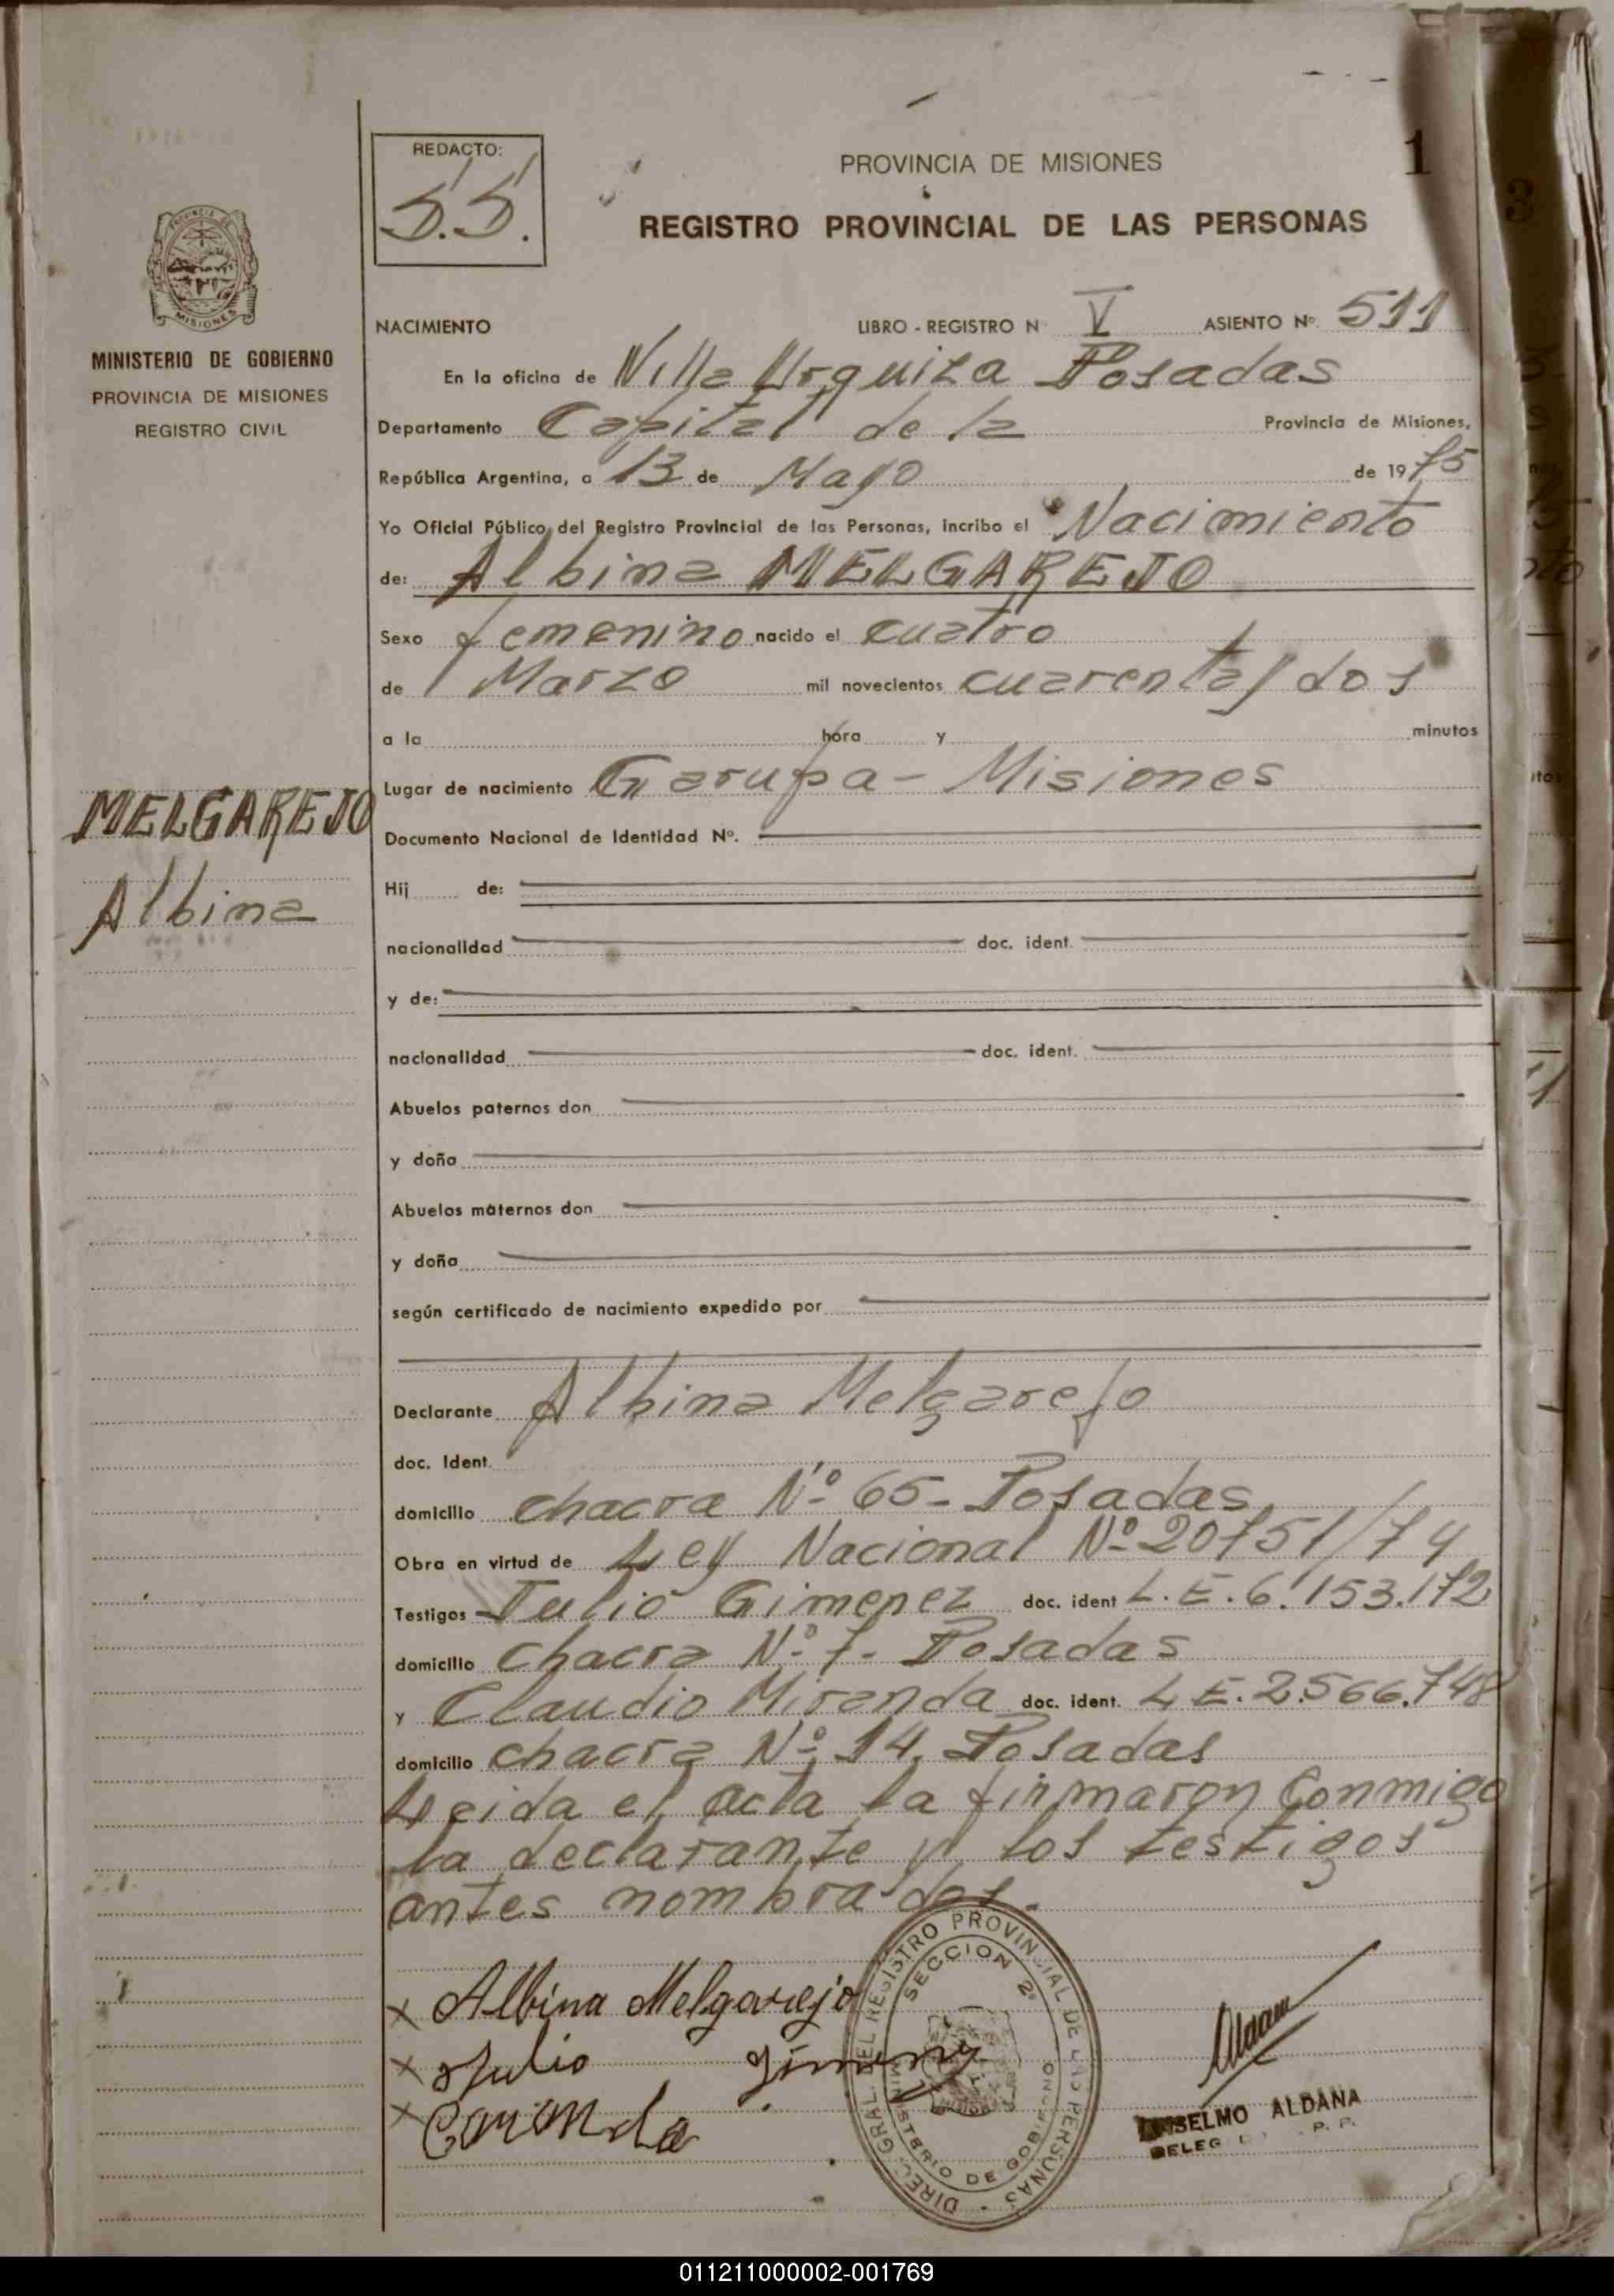 REDACTO:
S.S.
PROVINCIA DE MISIONES
1
REGISTRO PROVINCIAL DE LAS PERSONAS
MINISTERIO DE GOBIERNO
PROVINCIA DE MISIONES
REGISTRO CIVIL
NACIMIENTO LIBRO - REGISTRO N V ASIENTO Nº. 511
En la oficina de Villa Urquiza Posadas
Departamento Capital de la Provincia de Misiones,
República Argentina, a 13 de Mayo de 1975
Yo Oficial Público del Registro Provincial de las Personas, incribo el Nacimiento
de: Albina MELGAREJO
Sexo femenino nacido el cuatro
de Marzo mil novecientos cuarenta y dos
a la hora y minutos
Lugar de nacimiento Garupa - Misiones
MELGAREJO
Albina
Documento Nacional de Identidad Nº.
Hij de:
nacionalidad doc. ident.
y de:
nacionalidad doc. ident.
Abuelos paternos don
y doña
Abuelos maternos don
y doña
según certificado de nacimiento expedido por
Declarante Albina Melgarejo
doc. Ident.
domicilio chacra Nº 65 - Posadas
Obra en virtud de Ley Nacional Nº 20751/74
Testigos Julio Gimenez doc. ident L.E. 6.153.172
domicilio chacra Nº 7 - Posadas
y Claudio Miranda doc. ident. L.E. 2.566.748
domicilio chacra Nº 14. Posadas
Leida el acta la firmaron conmigo
la declarante y los testigos
antes nombrados.
x Albina Melgarejo
x Julio Jimenez
x
DIREC. GRAL. DEL REGISTRO PROVINCIAL DE LAS PERSONAS
SECCION 2º
MINISTERIO DE GOBIERNO
ANSELMO ALDANA
011211000002-001769